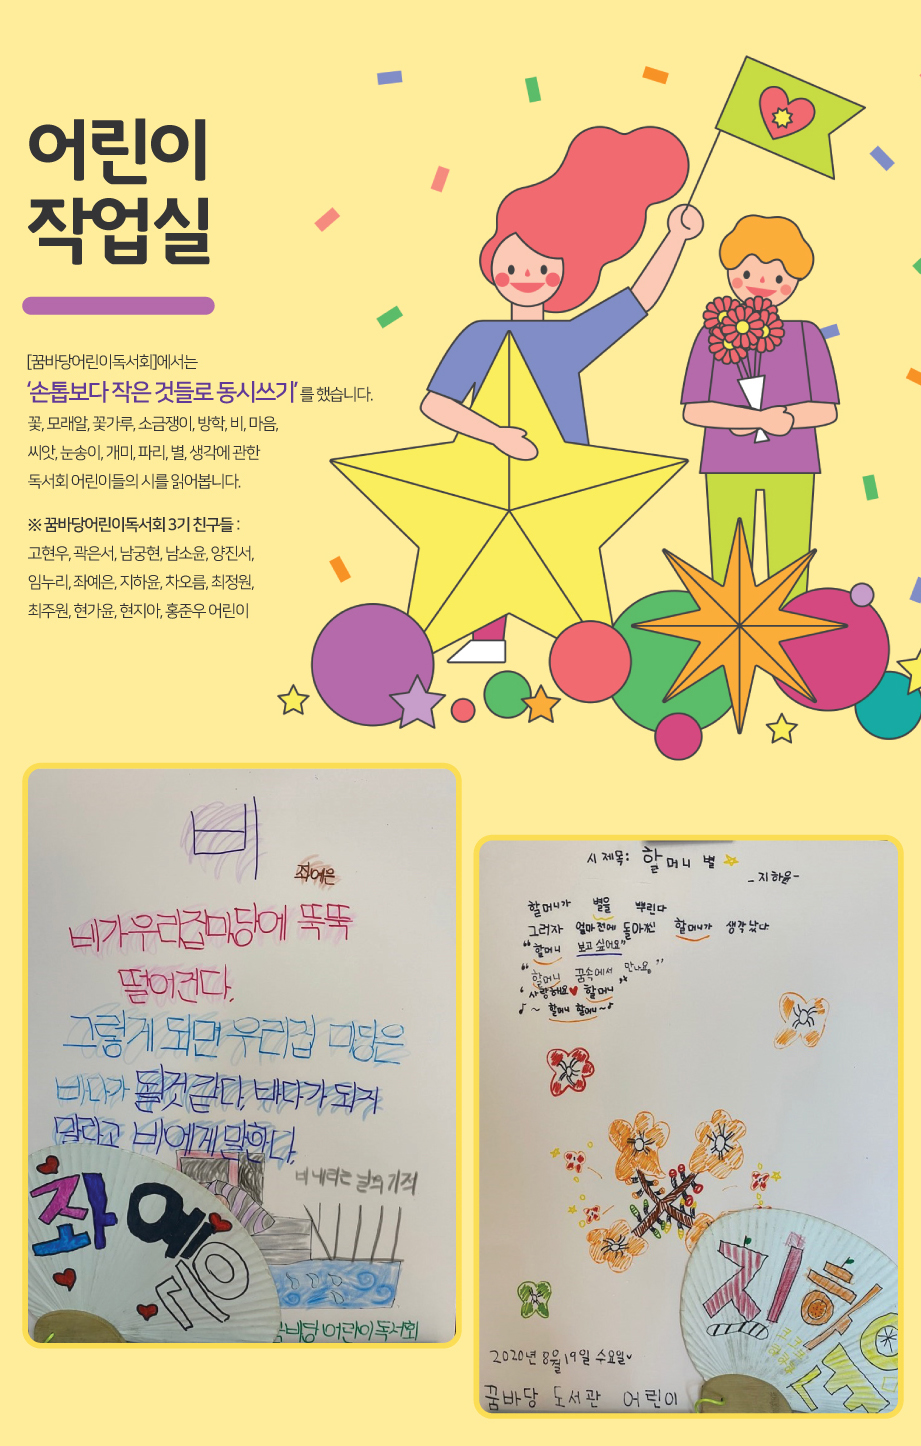 어린이
작업실
[꿈바당어린이독서회]에서는
‘손톱보다 작은 것들로 동시쓰기’를 했습니다.
꽃, 모래알, 꽃가루, 소금쟁이, 방학, 비, 마음,
씨앗, 눈송이, 개미, 파리, 별, 생각에 관한
독서회 어린이들의 시를 읽어봅니다.
※ 꿈바당어린이독서회 3기 친구들 :
고현우, 곽은서, 남궁현, 남소윤, 양진서,
임누리, 좌예은, 지하윤, 차오름, 최정원,
최주원, 현가윤, 현지아, 홍준우 어린이
비
좌예은
비가 우리집 마당에 뚝뚝
떨어진다.
그렇게 되면 우리집 마당은
바다가 될것 같다. 바다가 되지
말라고 비에게 말한다.
비 내리는 날의 기적
좌예은
꿈바당 어린이독서회
시 제목: 할머니 별
- 지하윤-
할머니가 별을 뿌린다
그러자 얼마전에 돌아가신 할머니가 생각났다
“할머니 보고 싶어요”
“할머니 꿈속에서 만나요.”
‘사랑해요♥ 할머니’
♪~ 할머니 할머니~♪
지하윤
2020년 8월 19일 수요일
꿈바당 도서관 어린이